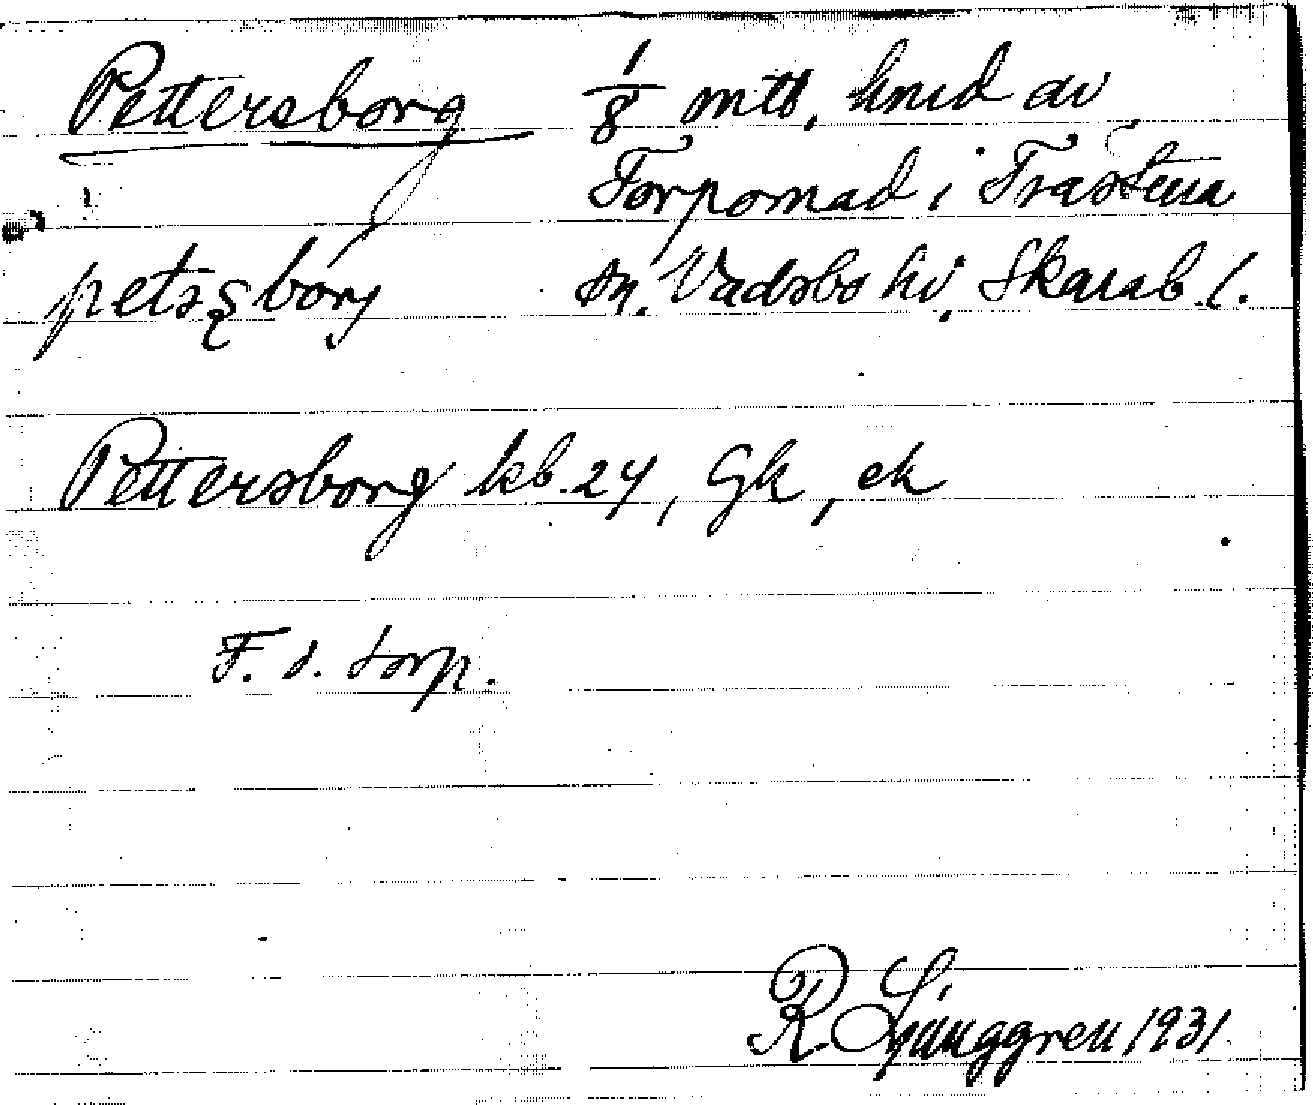 Pettersborg 1/8 mtl. hmd av
Torpomad i Trästena
petsς̨bórj sn. Vadsbo hd. Skarab. l.
Pettersborg kb. 24, Gk, ek
F. d. torp.
R. Ljunggren 1931